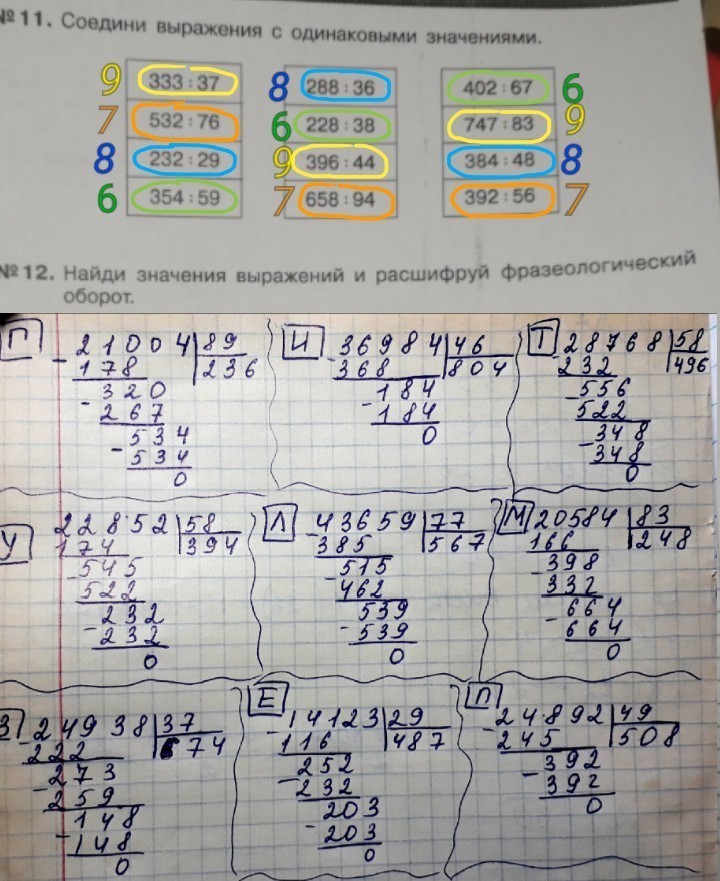 № 11. Соедини выражения с одинаковыми значениями.
9 333 : 37 8 288 : 36 402 : 67 6
7 532 : 76 6 228 : 38 747 : 83 9
8 232 : 29 9 396 : 44 384 : 48 8
6 354 : 59 7 658 : 94 392 : 56 7
№ 12. Найди значения выражений и расшифруй фразеологический
оборот.
П - 21004 89
178 236
- 320
267
- 534
534
0
И - 36984 46
368 804
- 184
184
0
Т - 28768 58
232 496
- 556
522
- 348
348
0
У 22852 58
174 394
- 545
522
- 232
232
0
Л - 43659 77
385 567
- 515
462
- 539
539
0
М 20584 83
166 248
- 398
332
- 664
664
0
З - 24938 37
222 674
- 273
259
- 148
148
0
Е - 14123 29
116 487
- 252
232
- 203
203
0
П - 24892 49
245 508
- 392
392
0